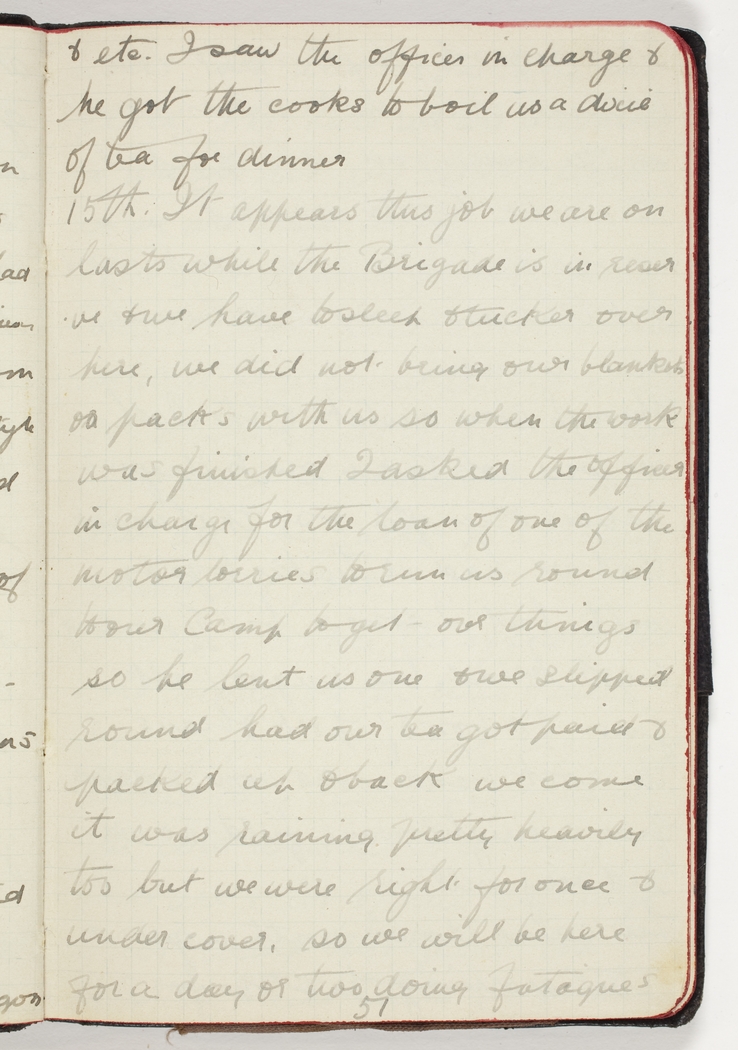 & etc. I saw the officer in charge &
he got the cooks to boil us a dixie
of tea for dinner
15th. It appears this job we are on
lasts while the Brigade is in reser
ve & we have to sleep & tucker over
here, we did not bring our blankets
or packs with us so when the work
was finished I asked the officer
in charge for the loan of one of the
motor lorries to run us round
to our Camp to get our things
so he lent us one & we slipped
round had our tea got paid &
packed up & back we come
it was raining pretty heavily
too but we were right for once &
under cover, so we will be here
for a day or two doing fatagues
51